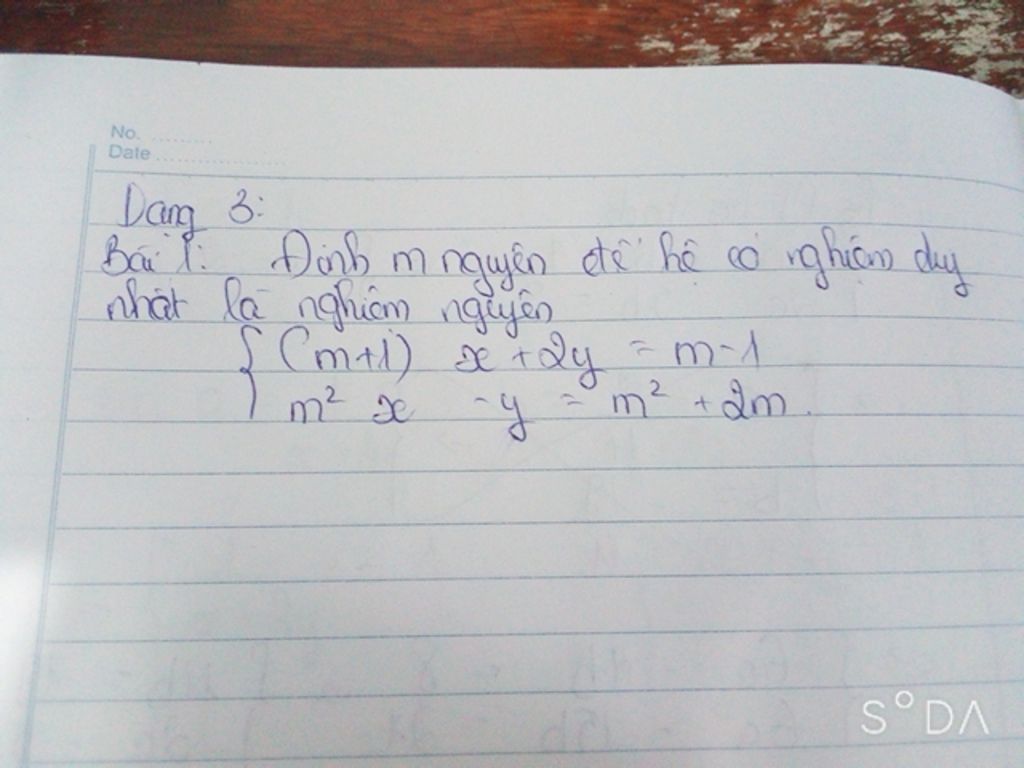 No. ...........
Date ......................
Dạng 3:
Bài 1: Định m nguyên để hệ có nghiệm duy
nhất là nghiệm nguyên
(m+1) x + 2y = m - 1
m² x - y = m² + 2m.
S°DA